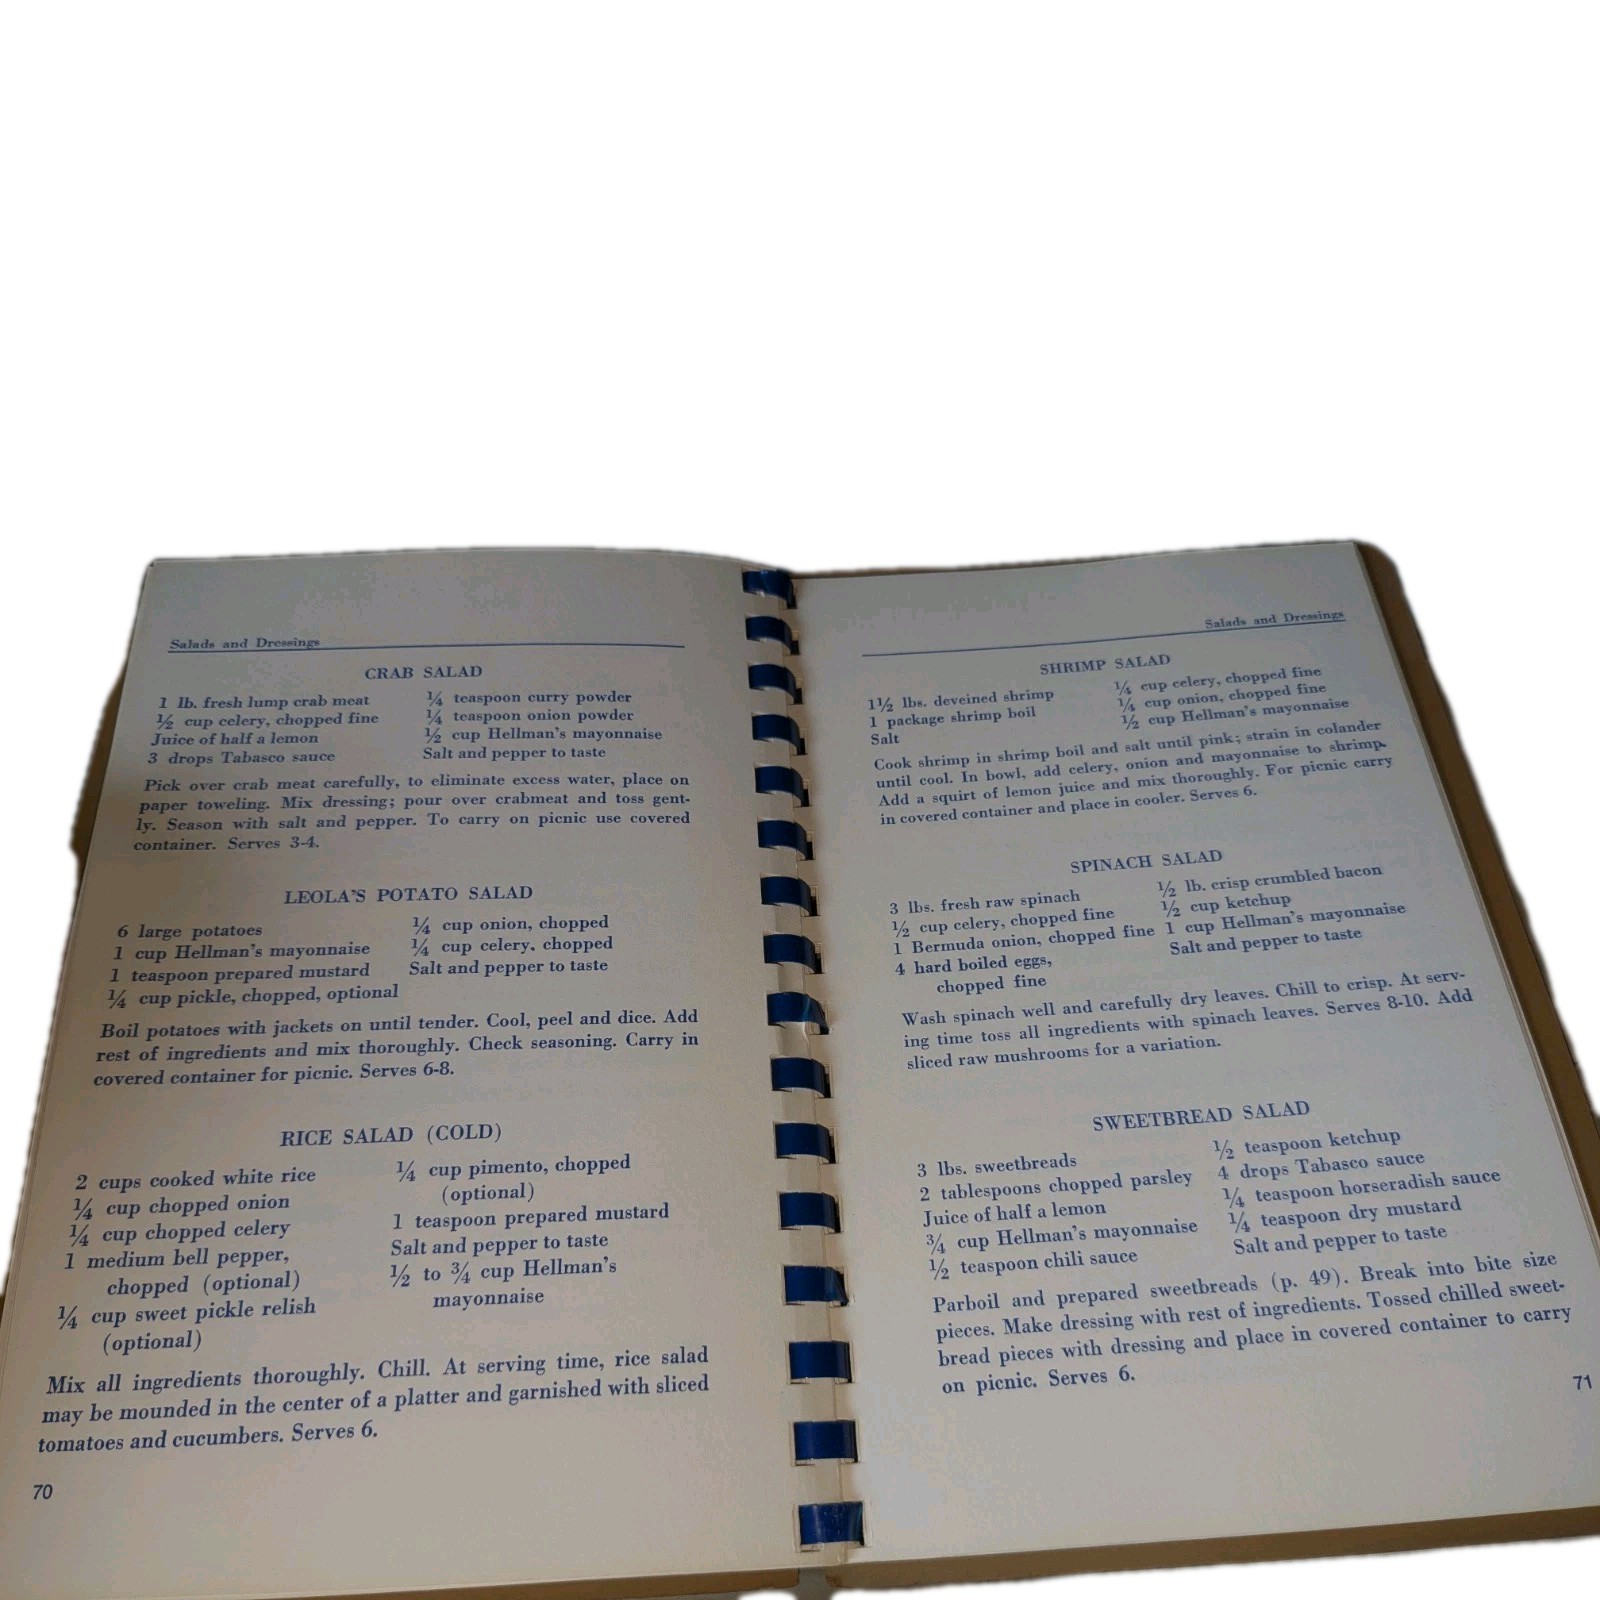 Salads and Dressings
CRAB SALAD
1 lb. fresh lump crab meat
½ cup celery, chopped fine
Juice of half a lemon
3 drops Tabasco sauce
¼ teaspoon curry powder
¼ teaspoon onion powder
½ cup Hellman's mayonnaise
Salt and pepper to taste
Pick over crab meat carefully, to eliminate excess water, place on
paper toweling. Mix dressing; pour over crabmeat and toss gent-
ly. Season with salt and pepper. To carry on picnic use covered
container. Serves 3-4.
LEOLA'S POTATO SALAD
6 large potatoes
1 cup Hellman's mayonnaise
1 teaspoon prepared mustard
¼ cup pickle, chopped, optional
¼ cup onion, chopped
¼ cup celery, chopped
Salt and pepper to taste
Boil potatoes with jackets on until tender. Cool, peel and dice. Add
rest of ingredients and mix thoroughly. Check seasoning. Carry in
covered container for picnic. Serves 6-8.
RICE SALAD (COLD)
2 cups cooked white rice
¼ cup chopped onion
¼ cup chopped celery
1 medium bell pepper,
chopped (optional)
¼ cup sweet pickle relish
(optional)
¼ cup pimento, chopped
(optional)
1 teaspoon prepared mustard
Salt and pepper to taste
½ to ¾ cup Hellman's
mayonnaise
Mix all ingredients thoroughly. Chill. At serving time, rice salad
may be mounded in the center of a platter and garnished with sliced
tomatoes and cucumbers. Serves 6.
70
Salads and Dressings
SHRIMP SALAD
1½ lbs. deveined shrimp
1 package shrimp boil
Salt
¼ cup celery, chopped fine
¼ cup onion, chopped fine
½ cup Hellman's mayonnaise
Cook shrimp in shrimp boil and salt until pink; strain in colander
until cool. In bowl, add celery, onion and mayonnaise to shrimp.
Add a squirt of lemon juice and mix thoroughly. For picnic carry
in covered container and place in cooler. Serves 6.
SPINACH SALAD
3 lbs. fresh raw spinach
½ cup celery, chopped fine
1 Bermuda onion, chopped fine
4 hard boiled eggs,
chopped fine
½ lb. crisp crumbled bacon
½ cup ketchup
1 cup Hellman's mayonnaise
Salt and pepper to taste
Wash spinach well and carefully dry leaves. Chill to crisp. At serv-
ing time toss all ingredients with spinach leaves. Serves 8-10. Add
sliced raw mushrooms for a variation.
SWEETBREAD SALAD
3 lbs. sweetbreads
2 tablespoons chopped parsley
Juice of half a lemon
¾ cup Hellman's mayonnaise
½ teaspoon chili sauce
½ teaspoon ketchup
4 drops Tabasco sauce
¼ teaspoon horseradish sauce
¼ teaspoon dry mustard
Salt and pepper to taste
Parboil and prepared sweetbreads (p. 49). Break into bite size
pieces. Make dressing with rest of ingredients. Tossed chilled sweet-
bread pieces with dressing and place in covered container to carry
on picnic. Serves 6.
71